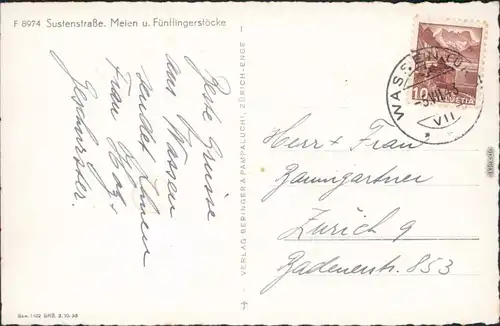 F 8974 Sustenstraße. Meien u. Fünffingerstöcke
Beste Grüsse
aus Wassen
sendet Ihnen
Frau
Geschwister.
VERLAG BERINGER & PAMPALUCHI, ZÜRICH-ENGE
WASSEN
VII
10
HELVETIA
Herr + Frau
Baumgartner
Zürich 9
Badenerstr. 853